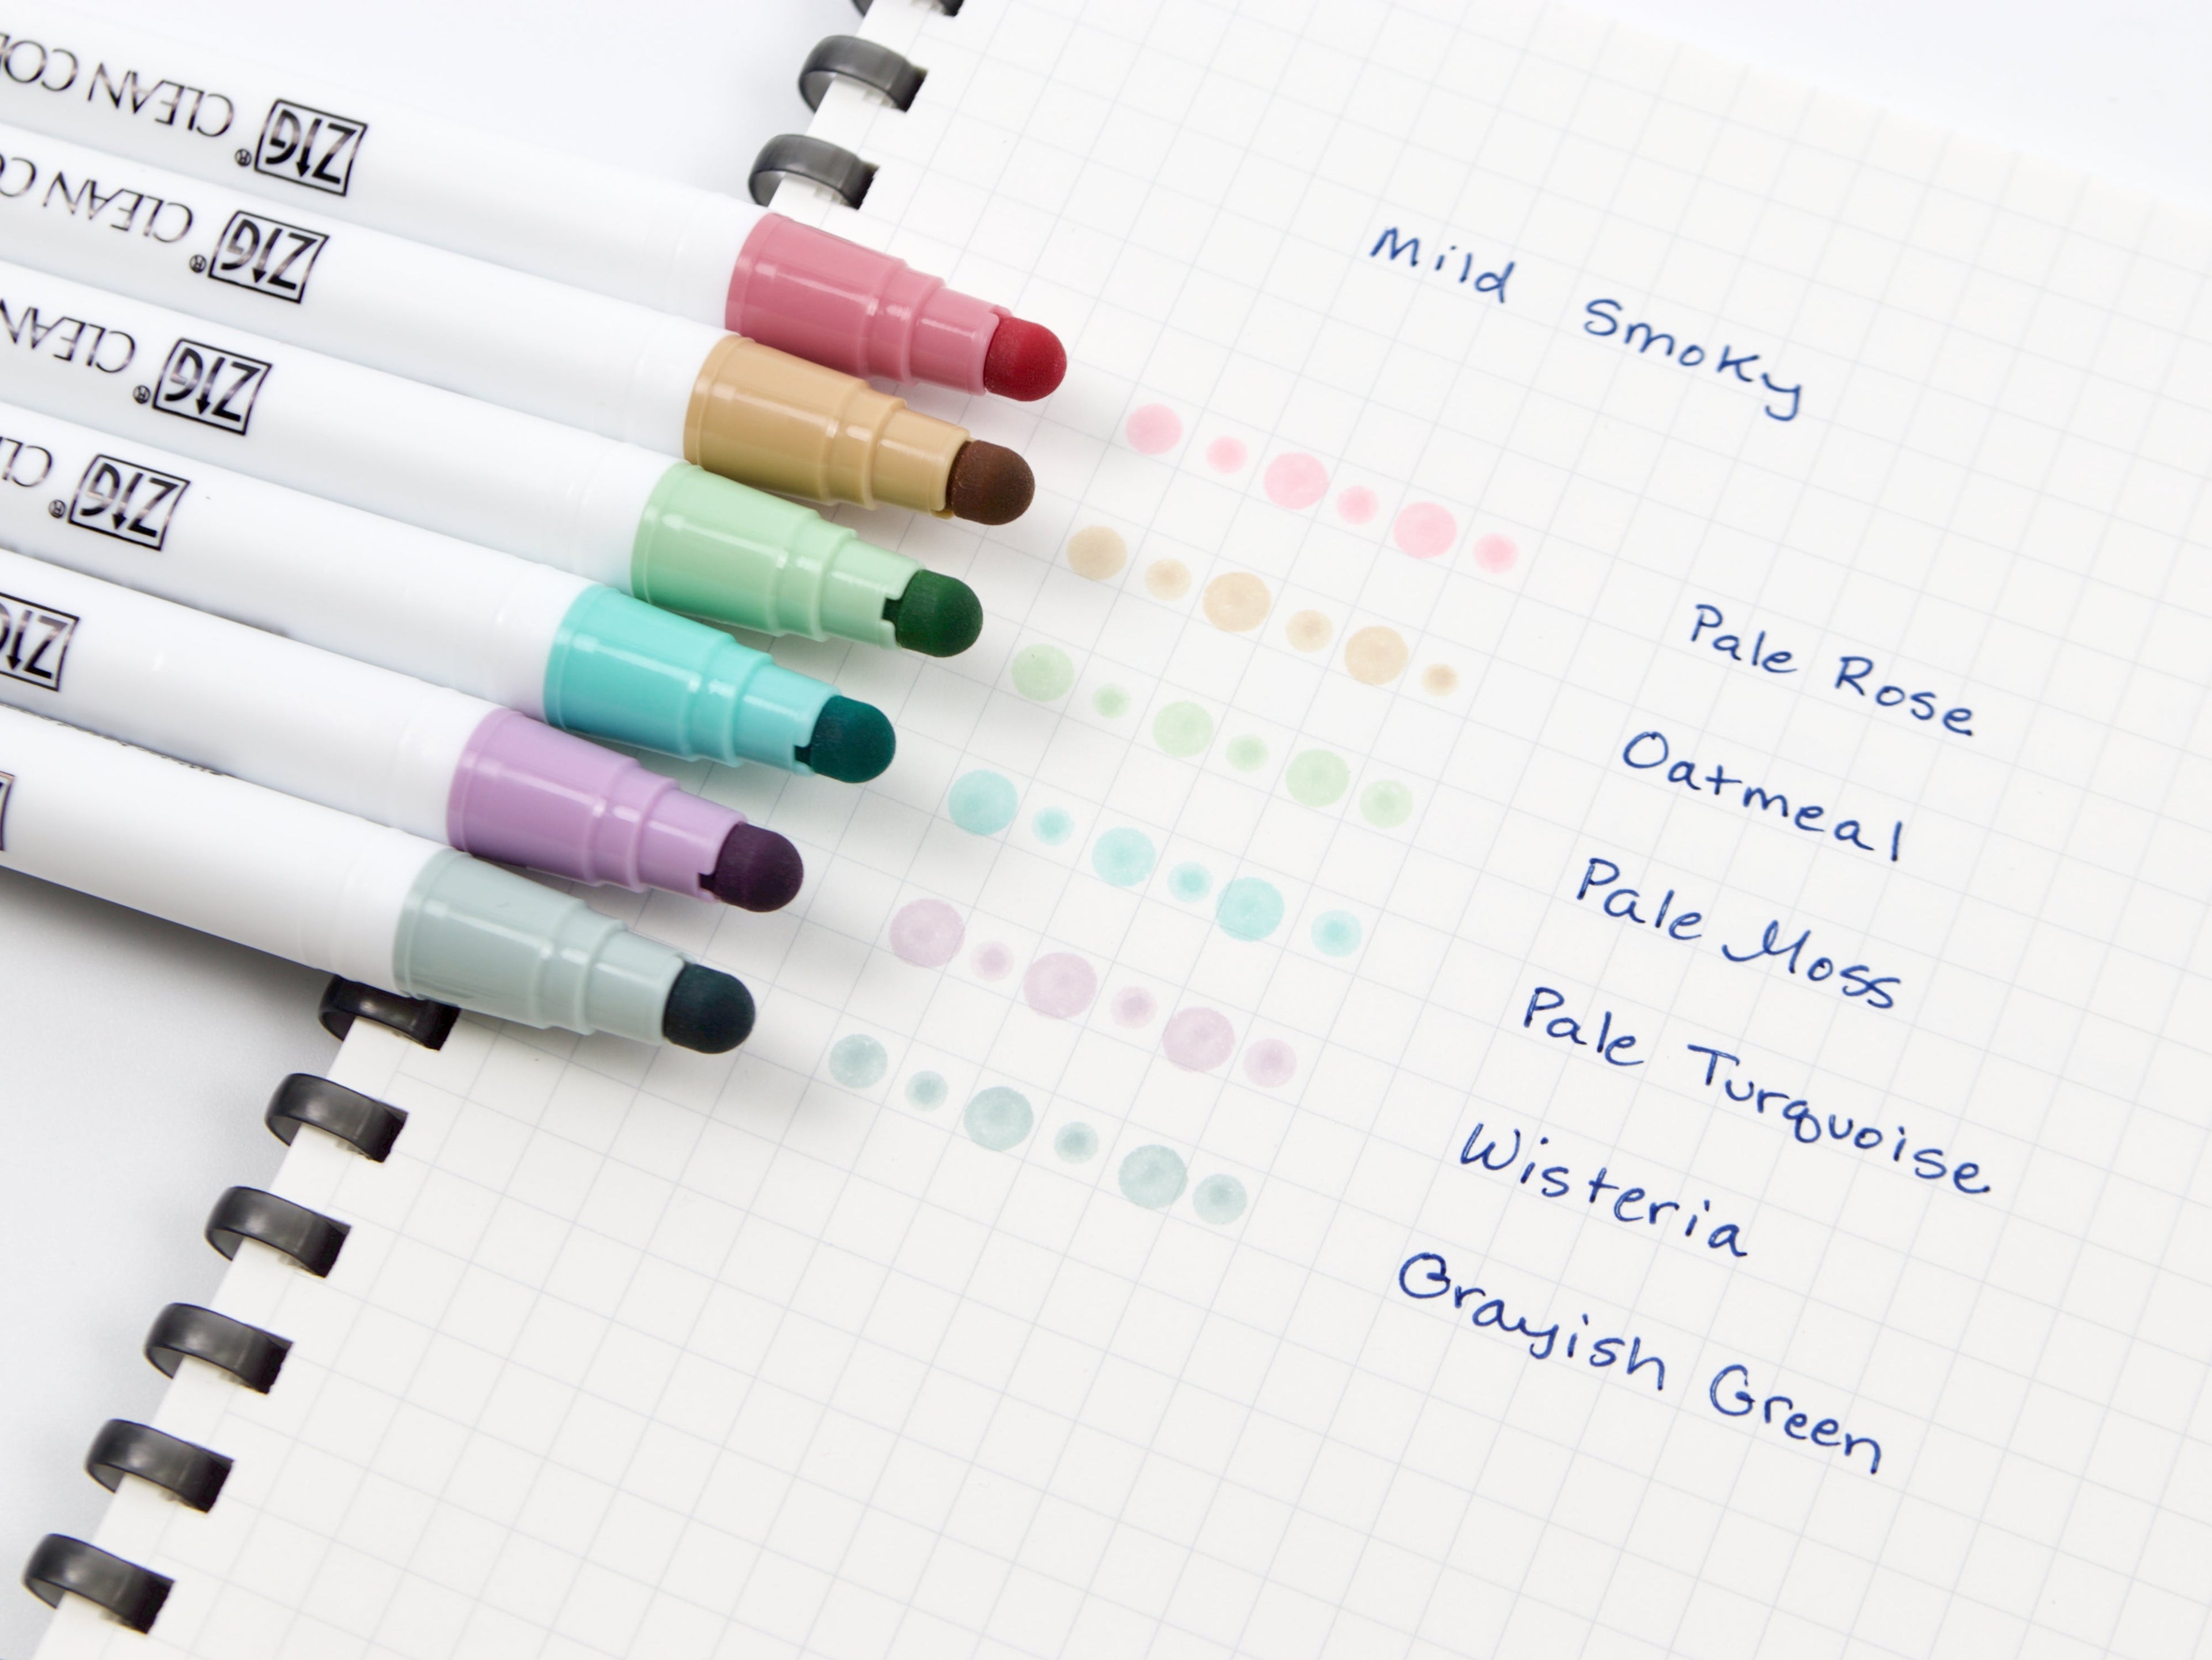 Mild Smoky
Pale Rose
Oatmeal
Pale Moss
Pale Turquoise
Wisteria
Grayish Green
ZIG® CLEAN COL
ZIG® CLEAN CO
ZIG® CLEAN
ZIG® CL
ZIG